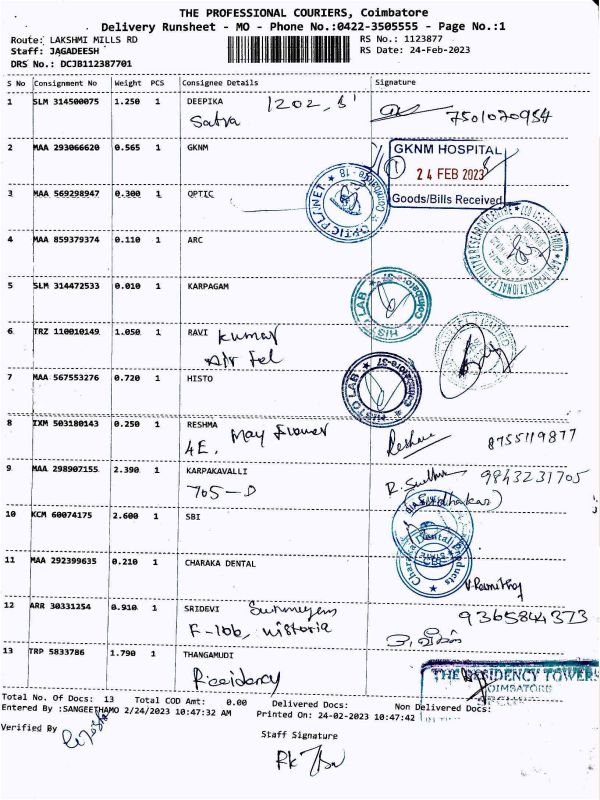 THE PROFESSIONAL COURIERS, Coimbatore
Delivery Runsheet - MO - Phone No.:0422-3505555 - Page No.:1
Route: LAKSHMI MILLS RD
RS No.: 1123877
Staff: JAGADEESH
RS Date: 24-Feb-2023
DRS No.: DCJB112387701
S No Consignment No Weight PCS Consignee Details Signature
1 SLM 314500075 1.250 1 DEEPIKA 1202, B' 7501070954
Satva
2 MAA 293066620 0.565 1 GKNM
GKNM HOSPITAL
24 FEB 2023
Goods/Bills Received
3 MAA 569298947 0.300 1 OPTIC
OPTIC PLANET ★ Coimbatore - 18 ★
4 MAA 859379374 0.110 1 ARC
5 SLM 314472533 0.010 1 KARPAGAM
HISTO LAB ★ Coimbatore-37 ★
6 TRZ 110010149 1.050 1 RAVI Kumar
Air tel
7 MAA 567553276 0.720 1 HISTO
HISTO LAB ★ Coimbatore-37 ★
8 IXM 503180143 0.250 1 RESHMA May Flower Reshma 8755119877
4E,
9 MAA 298907155 2.390 1 KARPAKAVALLI R. Sudha 9843231705
705-D
10 KCM 60074175 2.600 1 SBI
11 MAA 292399635 0.210 1 CHARAKA DENTAL
Charaka Dental Products
12 ARR 30331254 0.910 1 SRIDEVI 9365844373
F-106, Wistoria
13 TRP 5833786 1.790 1 THANGAMUDI
Residency
THE RESIDENCY TOWERS
COIMBATORE
Total No. Of Docs: 13 Total COD Amt: 0.00 Delivered Docs: Non Delivered Docs:
Entered By :SANGEETHAMO 2/24/2023 10:47:32 AM Printed On: 24-02-2023 10:47:42
Verified By
Staff Signature